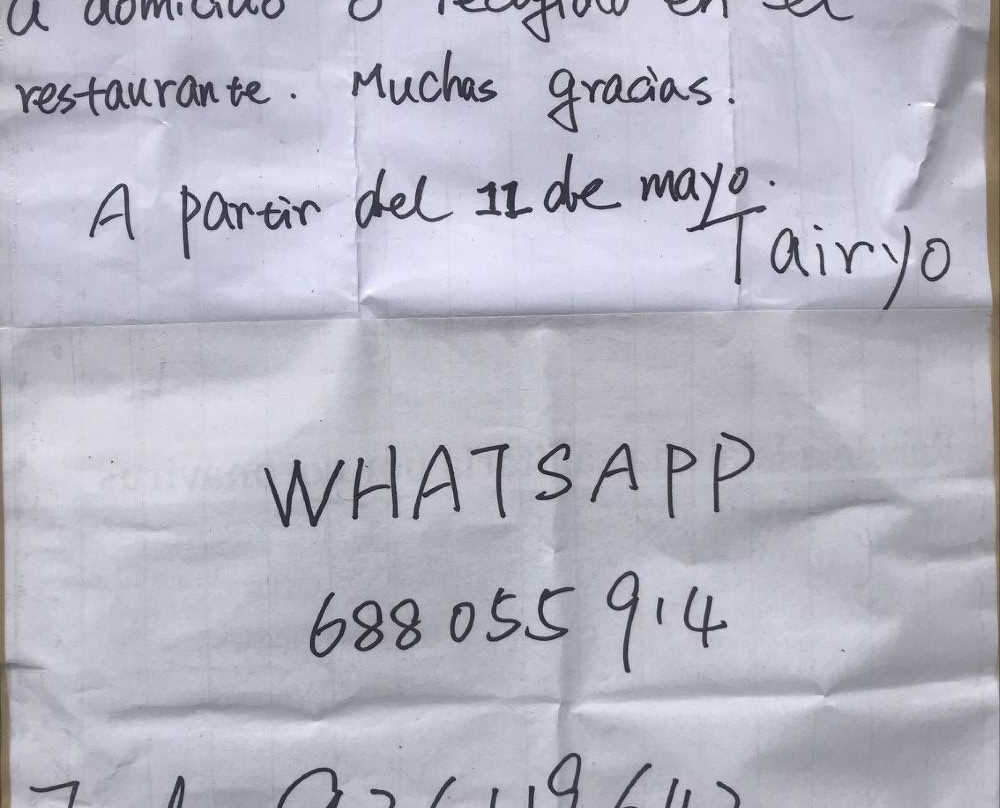 a domicilio o recogido en el
restaurante. Muchas gracias.
A partir del 11 de mayo.
Tairyo
WHATSAPP
688 055 914